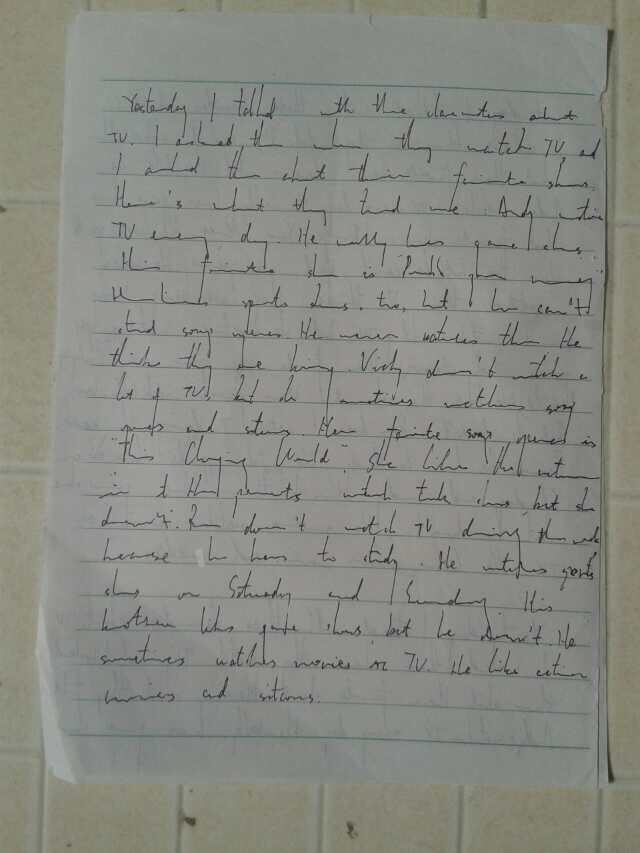 Yesterday I talked with three classmates about
TV. I asked them when they watch TV, and
I asked them about their favorite shows.
Here's what they told me. Andy watches
TV every day. He really likes game shows.
His favorite show is "
He likes sports shows, too, but he can't
stand soap operas. He never watches them. He
thinks they are boring. Vicky doesn't watch a
lot of TV, but she sometimes watches soap
operas and sitcoms. Her favorite soap operas is
"This Changing World". She likes the
in it. Her parents watch talk shows, but she
doesn't. doesn't watch TV during the week,
because he has to study. He watches sports
shows on Saturday and Sunday. His
brother likes game shows, but he doesn't. He
sometimes watches movies on TV. He like action
movies and sitcoms.